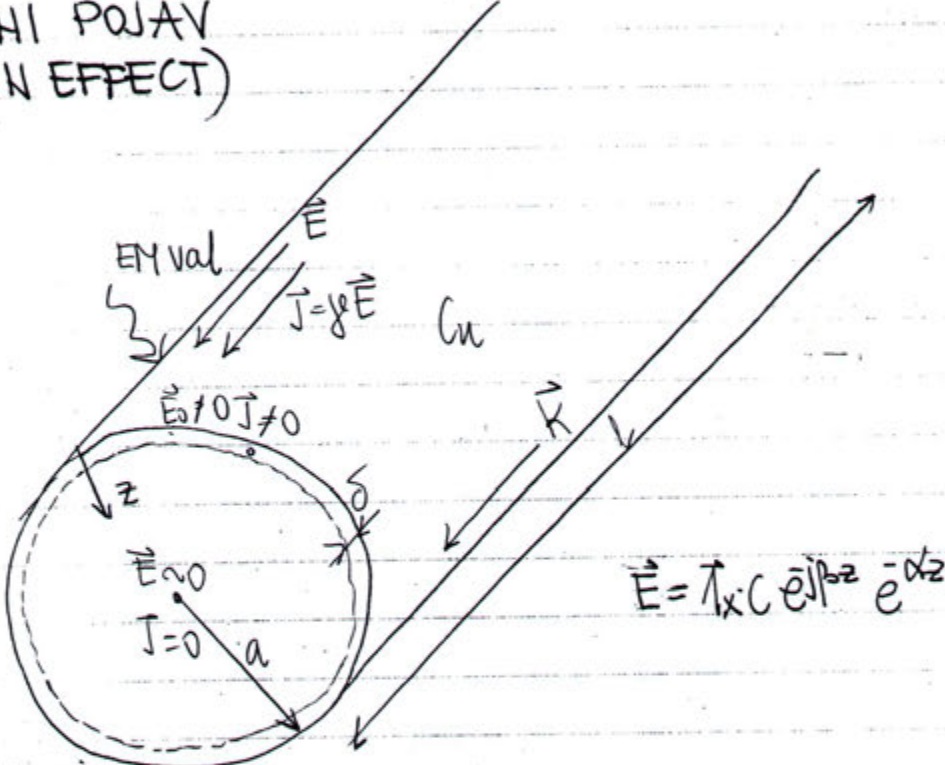 NI POJAV
N EFFECT)
EM val
E⃗
J⃗=γE⃗
Cu
E⃗₀≠0 J⃗≠0
K⃗
z
δ
l
E⃗≈0
J=0
a
E⃗=1⃗ₓ·C e^-jβz e^-αz